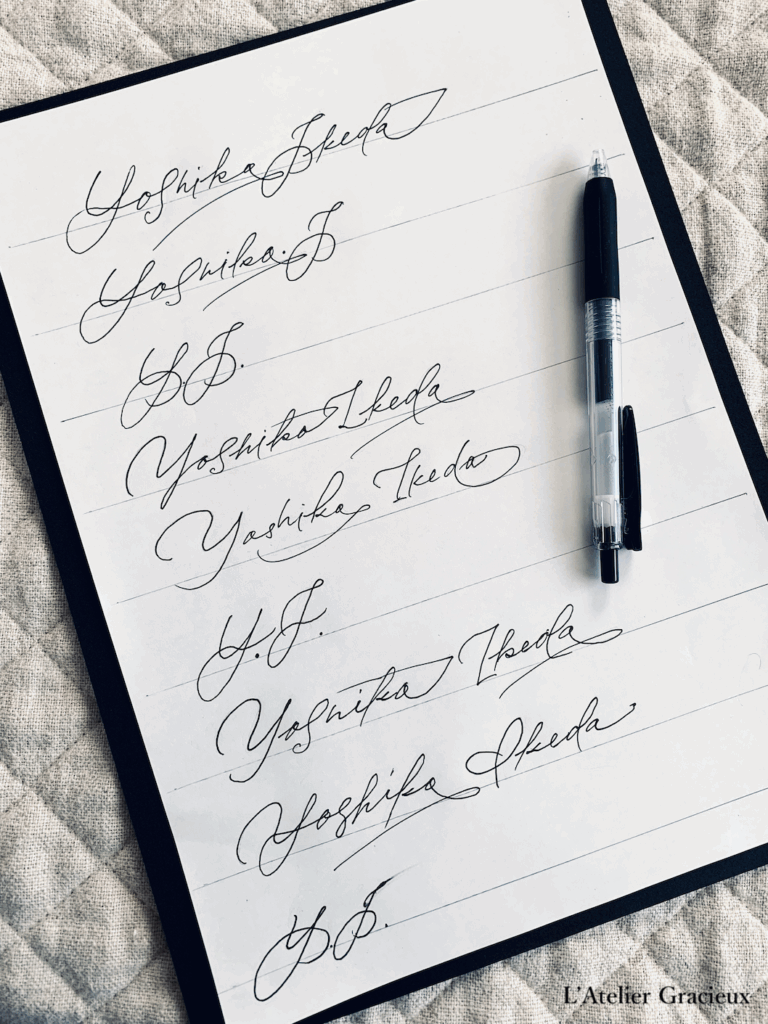 Yoshika Ikeda
Yoshika. I
Y.I.
Yoshika Ikeda
Yoshika Ikeda
Y.I.
Yoshika Ikeda
Yoshika Ikeda
Y.I.
L'Atelier Gracieux